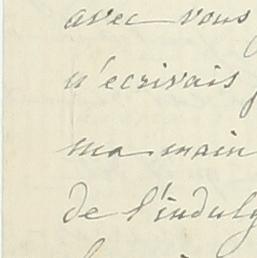 avec vous
n'ecrivais
ma main
de l'indulg